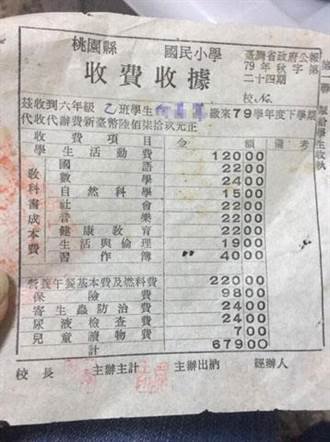 桃園縣 國民小學
臺灣省政府公報
79年秋字第
二十四期
收費收據
校No.
茲收到六年級乙班學生 繳來79學年度下學期
代收代辦費新臺幣陸佰柒拾玖元正
收費項目 金額 備考
學生活動費 12000
教科書成本費
國語 2200
數學 2400
自然科學 1500
社會 2200
音樂 2200
健康教育 2200
生活與倫理 1900
習作簿 4000
營養午餐基本費及燃料費 22000
保險費 9800
寄生蟲防治費 2400
尿液檢查費 2400
兒童讀物費 700
計 67900
校長 主辦主計 主辦出納 經辦人